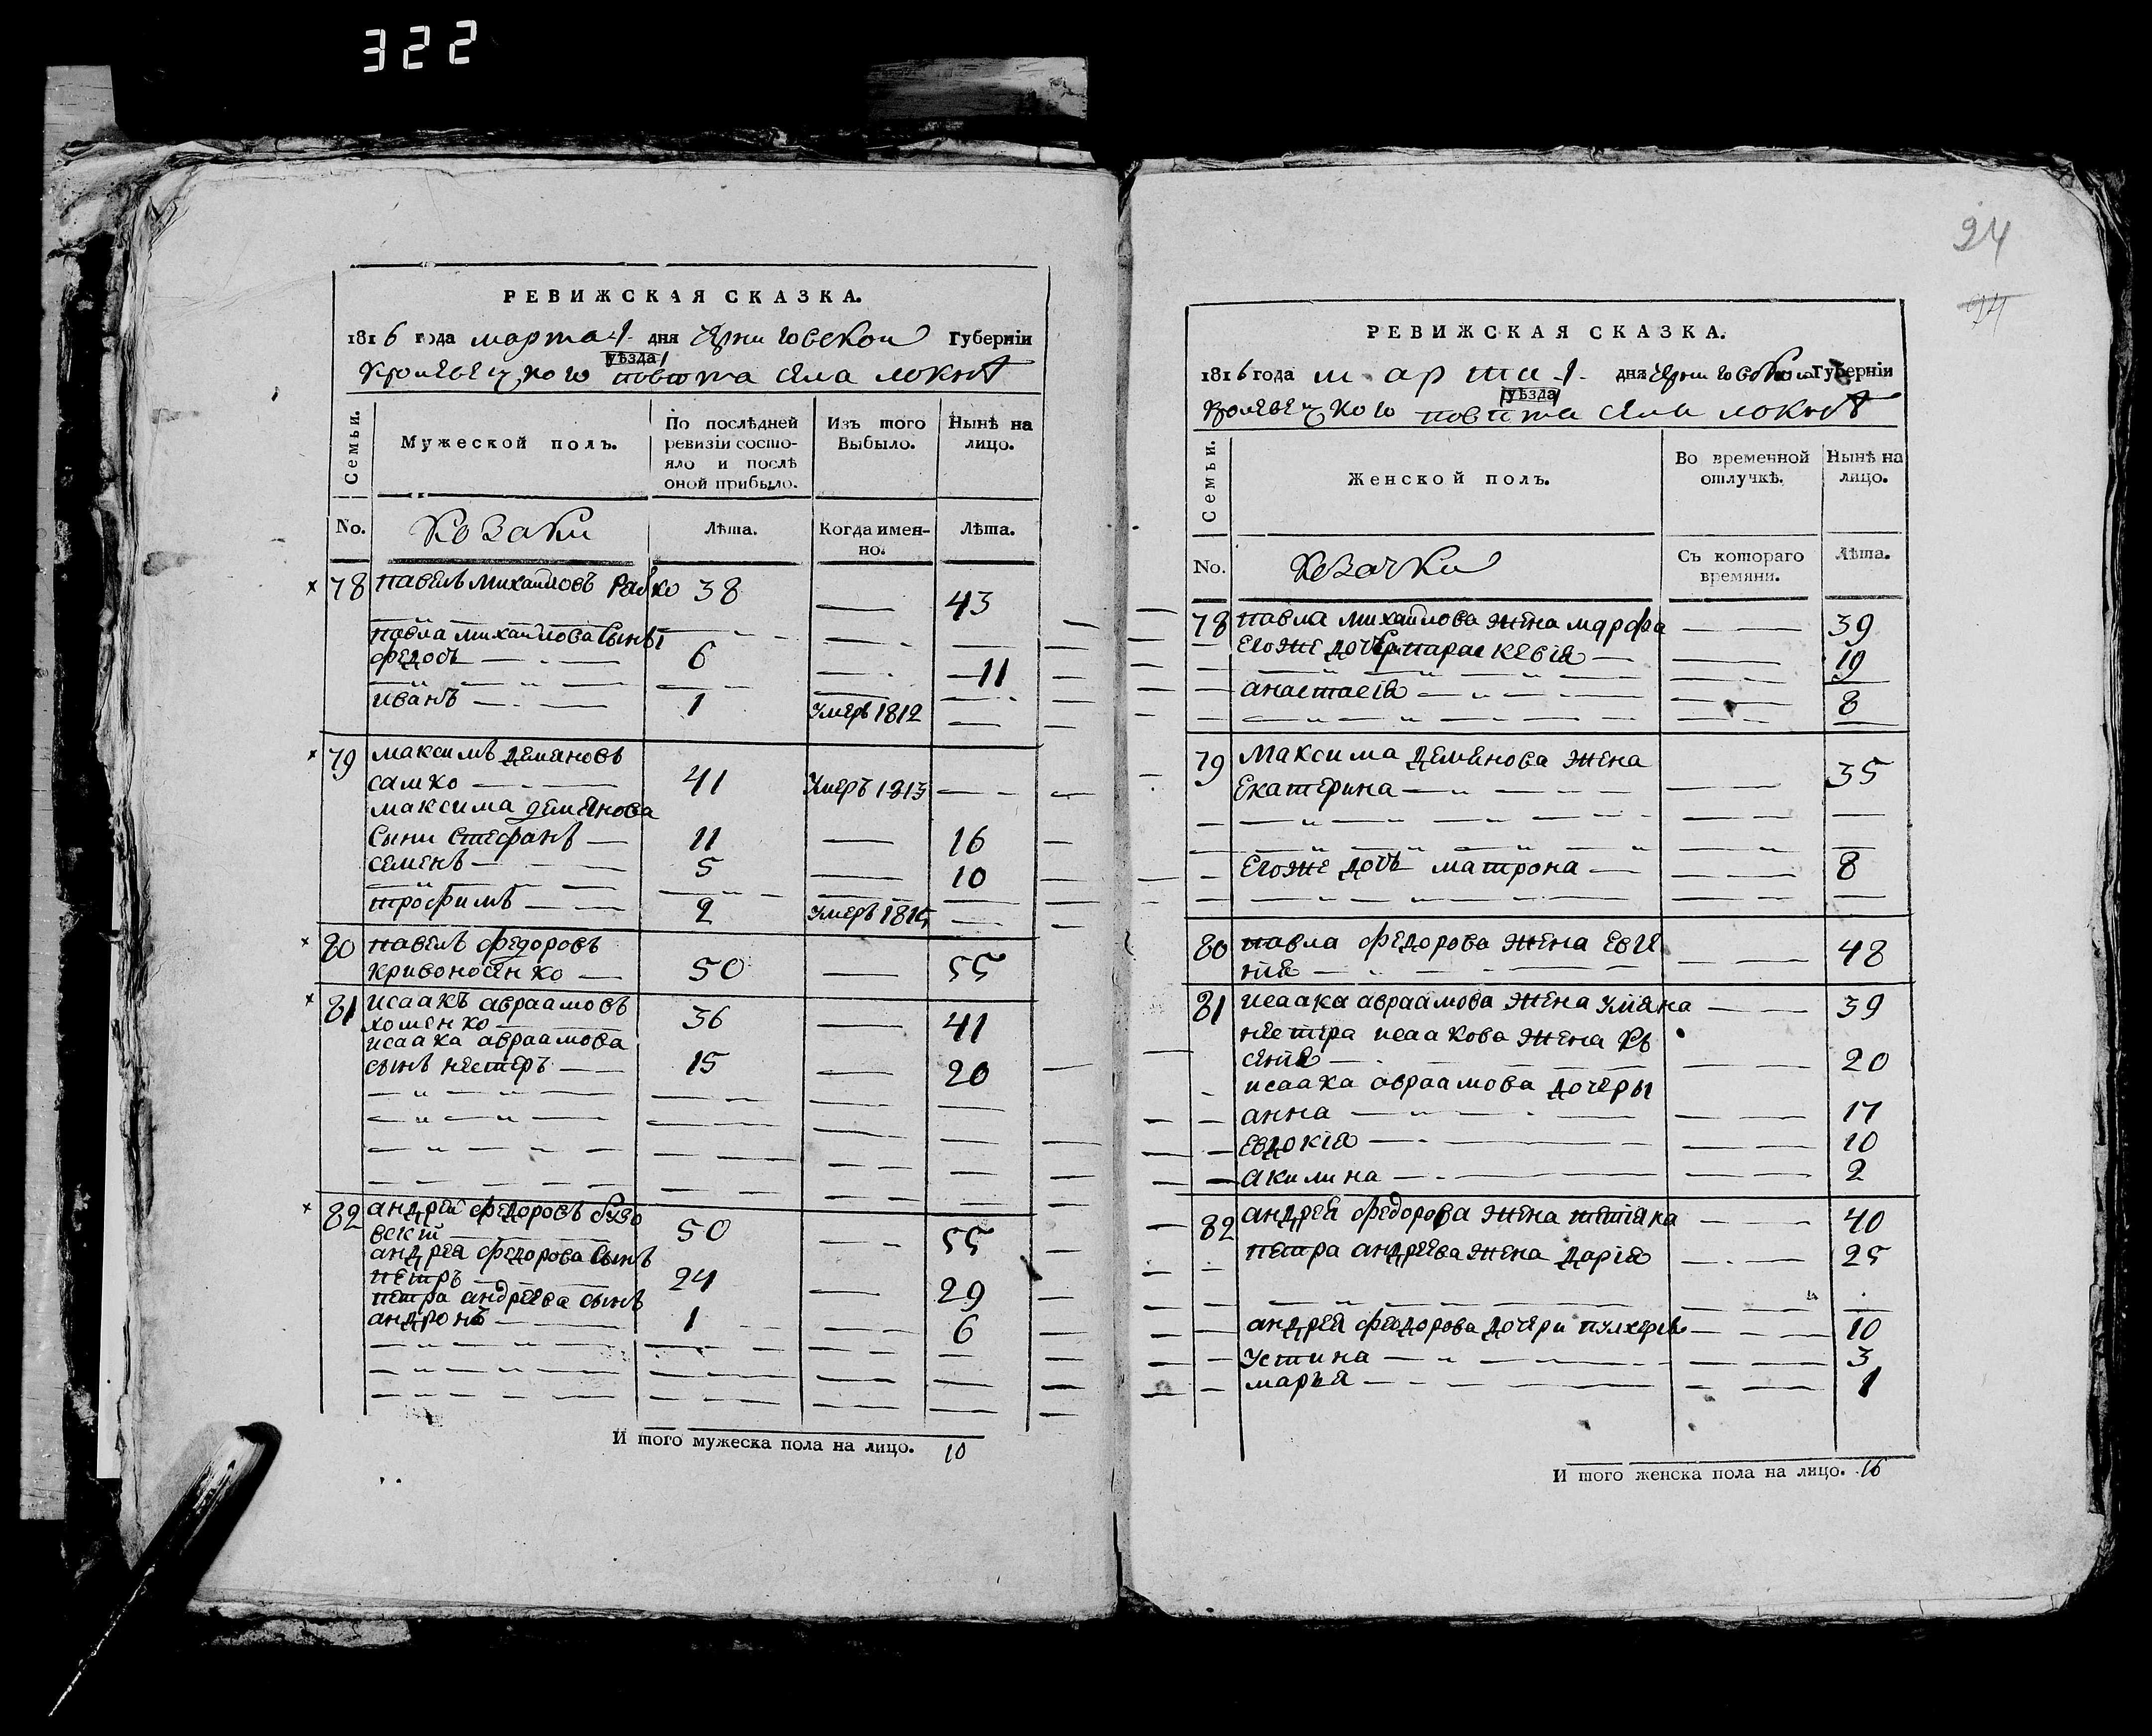 322
РЕВИЖСКАЯ СКАЗКА.
1816 года марта 1 дня Черниговской Губерніи
уѣзда
Кролевецкого повѣта села Локнѣ
Семьи.
Мужеской полъ.
По послѣдней ревизіи состояло и послѣ оной прибыло.
Изъ того Выбыло.
Нынѣ на лицо.
No.
Козаки
Лѣта.
Когда именно.
Лѣта.
78 павелъ михаиловъ 38 — 43
павла михаилова сынъ
федоръ — 6 — 11
иванъ — 1 умеръ 1812 —
79 максимъ демяновъ
самко — 41 умеръ 1813 —
максима демянова
сыни стефанъ — 11 — 16
семенъ — 5 — 10
трофимъ — 2 умеръ 1815 —
80 павелъ федоровъ
кривоносенко — 50 — 55
81 исаакъ авраамовъ
хоменко 36 — 41
исаака авраамова
сынъ нестеръ — 15 — 20
82 андрей федоровъ бузо
вскій 50 — 55
андрея федорова сынъ
петръ 24 — 29
петра андреева сынъ
андронъ — 1 — 6
И того мужеска пола на лицо. 10
24
РЕВИЖСКАЯ СКАЗКА.
1816 года марта 1 дня Черниговской Губерніи
уѣзда
Кролевецкого повѣта села Локнѣ
Семьи.
Женской полъ.
Во временной отлучкѣ.
Нынѣ на лицо.
No.
Козачки
Съ котораго времяни.
Лѣта.
78 павла михаилова жена марфа — 39
егоже дочери параскевія — 19
анастасія — 8
79 Максима демянова жена
Екатерина — 35
Егоже дочь матрона — 8
80 павла федорова жена Евге
нія — 48
81 исаака авраамова жена уляна — 39
нестера исаакова жена Къ
сенія — 20
исаака авраамова дочеры
анна — 17
Евдокія — 10
акилина — 2
82 андрея федорова жена тетіяна — 40
петра андреева жена дарія — 25
андрея федорова дочери пулхерія — 10
устина — 3
марья — 1
И того женска пола на лицо. 16